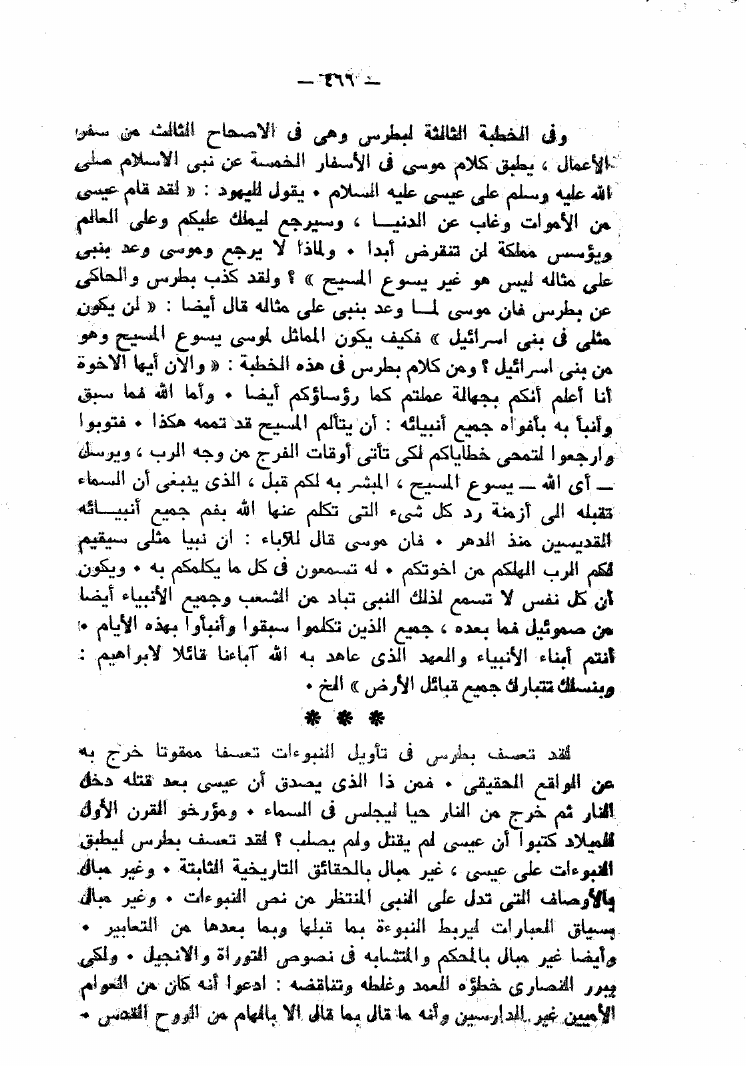 — ٤٦٦ —
وفى الخطبة الثالثة لبطرس وهى فى الاصحاح الثالث من سفر
الأعمال ، يطبق كلام موسى فى الأسفار الخمسة عن نبى الاسلام صلى
الله عليه وسلم على عيسى عليه السلام ٠ يقول لليهود : « لقد قام عيسى
من الأموات وغاب عن الدنيا ، وسيرجع ليملك عليكم وعلى العالم
ويؤسس مملكة لن تنقرض أبدا ٠ ولماذا لا يرجع وموسى وعد بنبى
على مثاله ليس هو غير يسوع المسيح » ؟ ولقد كذب بطرس والحاكى
عن بطرس فان موسى لما وعد بنبى على مثاله قال أيضا : « لن يكون
مثلى فى بنى اسرائيل » فكيف يكون المماثل لموسى يسوع المسيح وهو
من بنى اسرائيل ؟ ومن كلام بطرس فى هذه الخطبة : « والآن أيها الاخوة
أنا أعلم أنكم بجهالة عملتم كما رؤساؤكم أيضا ٠ وأما الله فما سبق
وأنبأ به بأفواه جميع أنبيائه : أن يتألم المسيح قد تممه هكذا ٠ فتوبوا
وارجعوا لتمحى خطاياكم لكى تأتى أوقات الفرج من وجه الرب ، ويرسل
— أى الله — يسوع المسيح ، المبشر به لكم قبل ، الذى ينبغى أن السماء
تقبله الى أزمنة رد كل شىء التى تكلم عنها الله بفم جميع أنبيائه
القديسين منذ الدهر ٠ فان موسى قال للآباء : ان نبيا مثلى سيقيم
لكم الرب الهكم من اخوتكم ٠ له تسمعون فى كل ما يكلمكم به ٠ ويكون
أن كل نفس لا تسمع لذلك النبى تباد من الشعب وجميع الأنبياء أيضا
من صموئيل فما بعده ، جميع الذين تكلموا سبقوا وأنبأوا بهذه الأيام ٠
أنتم أبناء الأنبياء والعهد الذى عاهد به الله آباءنا قائلا لابراهيم :
وبنسلك تتبارك جميع قبائل الأرض » الخ ٠
* * *
لقد تعسف بطرس فى تأويل النبوءات تعسفا ممقوتا خرج به
عن الواقع الحقيقى ٠ فمن ذا الذى يصدق أن عيسى بعد قتله دخل
النار ثم خرج من النار حيا ليجلس فى السماء ٠ ومؤرخو القرن الأول
للميلاد كتبوا أن عيسى لم يقتل ولم يصلب ؟ لقد تعسف بطرس ليطبق
النبوءات على عيسى ، غير مبال بالحقائق التاريخية الثابتة ٠ وغير مبال
بالأوصاف التى تدل على النبى المنتظر من نص النبوءات ٠ وغير مبال
بسياق العبارات ليربط النبوءة بما قبلها وبما بعدها من التعابير ٠
وأيضا غير مبال بالمحكم والمتشابه فى نصوص التوراة والانجيل ٠ ولكى
يبرر النصارى خطؤه العمد وغلطه وتناقضه : ادعوا أنه كان من العوام
الأميين غير الدارسين وأنه ما قال بما قال الا بالهام من الروح القدس ٠